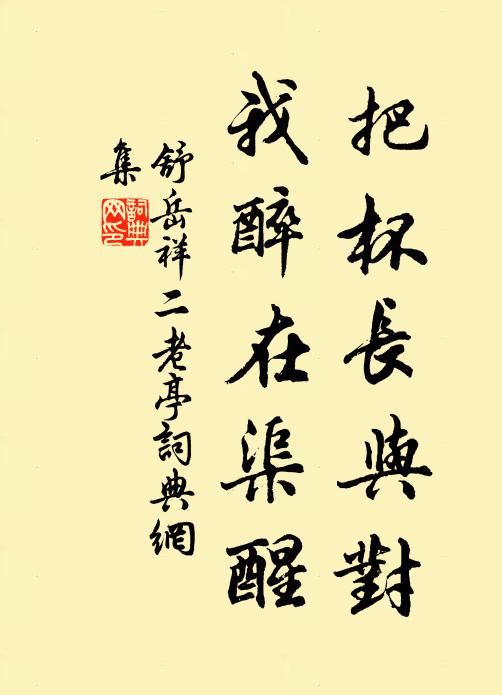 把杯長與對
我醉在渠醒
舒岳祥二老亭詞典網
集
詞典網印